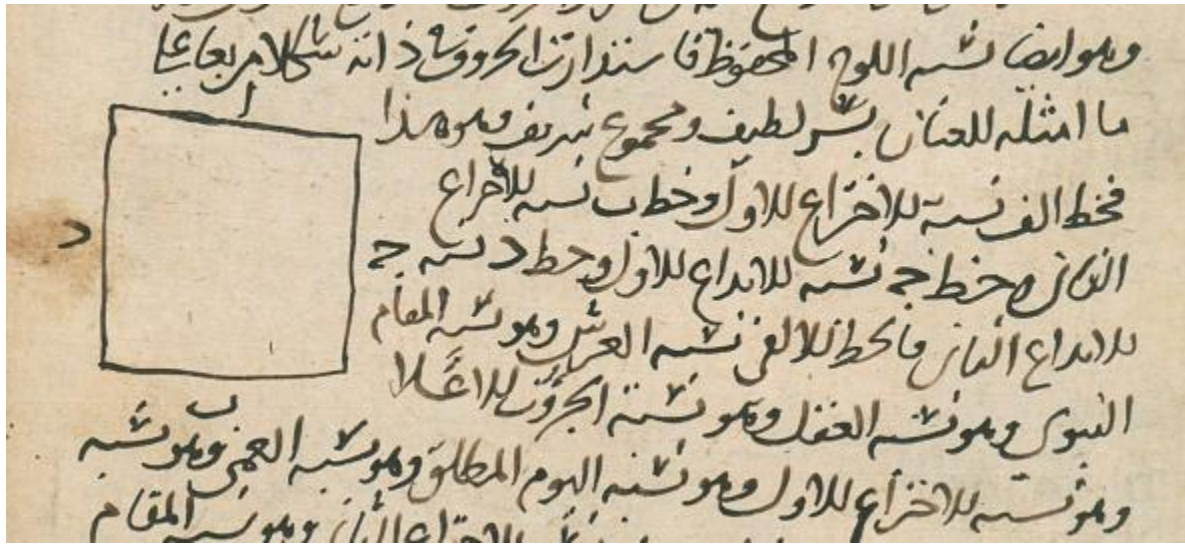 وهو ايضا نسبه اللوح المحفوظ فاستدارت الحروف في ذاته شكلا مربعا على
ا
ما امثله للعيان بسر لطيف ومجموع شريف وهو هذا
فخط الف نسبة للاختراع للاول وخط ب نسبه للاختراع
د
الثاني وخط جـ نسبه للابداع للاول وخط د نسبه
جـ
للابداع الثاني فالخط للالفي نسبه العرش وهو نسبه المقام
النبوي وهو نسبه العقل وهو نسبة الجبروت للاعلا
ب
وهو نسبه للاختراع للاول وهو نسبه اليوم المطلق وهو نسبه وهو نسبه
للاختراع الثاني وهو نسبه المقام